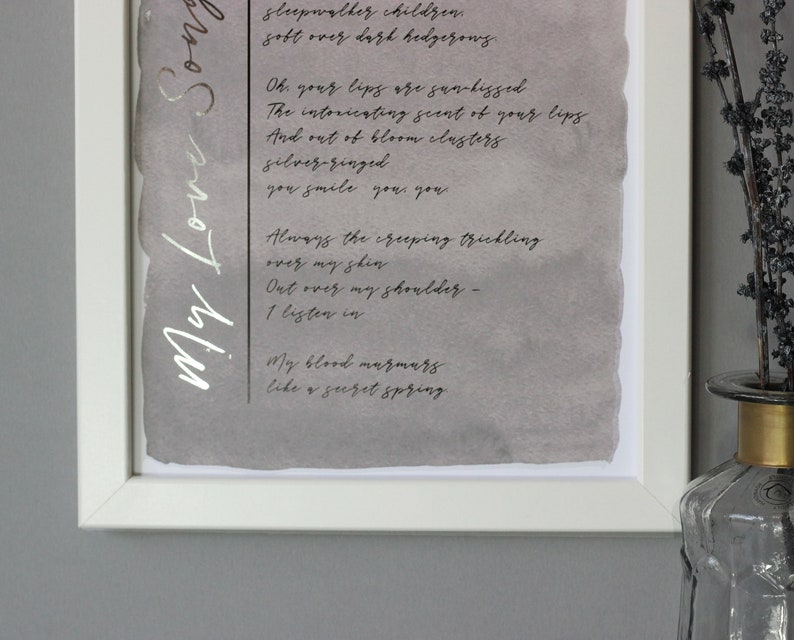 My Love Song
sleepwalker children,
soft over dark hedgerows.
Oh, your lips are sun-kissed
The intoxicating scent of your lips
And out of bloom clusters
silver-ringed
you smile you, you.
Always the creeping trickling
over my skin
Out over my shoulder –
I listen in
My blood murmurs
like a secret spring